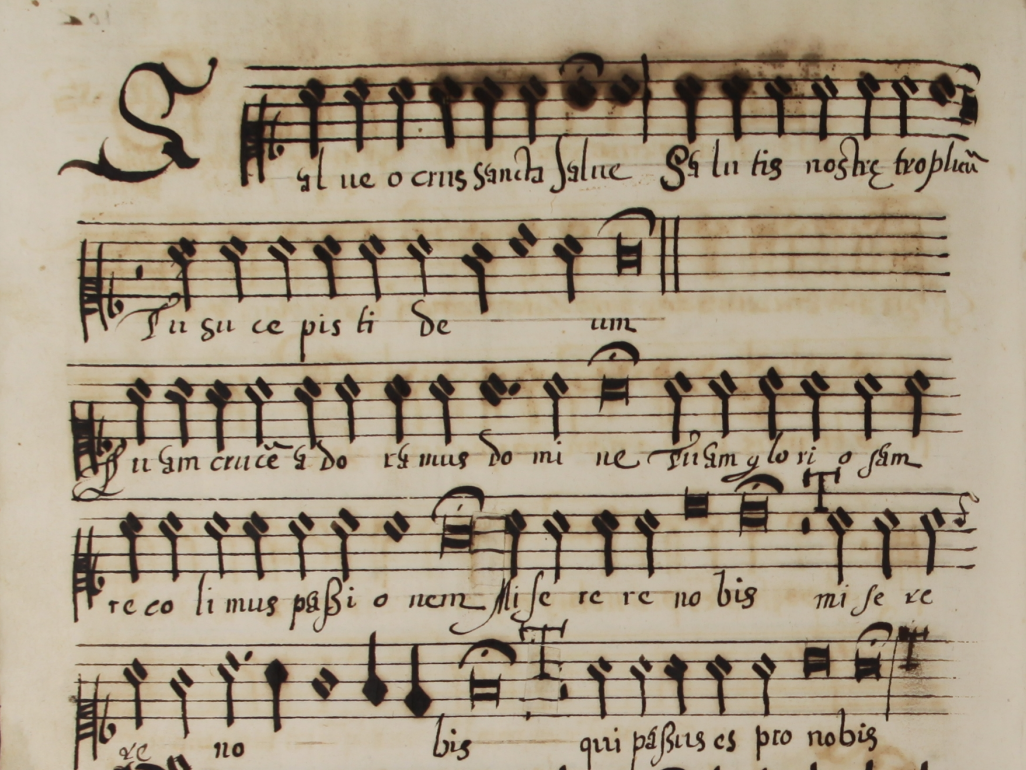 Sal ue o crus sancta salue Sa lu tis nostrę trophęũ
Tu su ce pis ti de um
Tu am crucẽ a do ra mus do mi ne Tu am glo ri o sam
re co li mus paßi o nem Mi se re re no bis mi se re
re no bis qui paßus es pro nobis